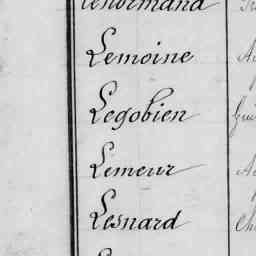 Lenormand
Lemoine
Legobien
Lemeur
Lesnard